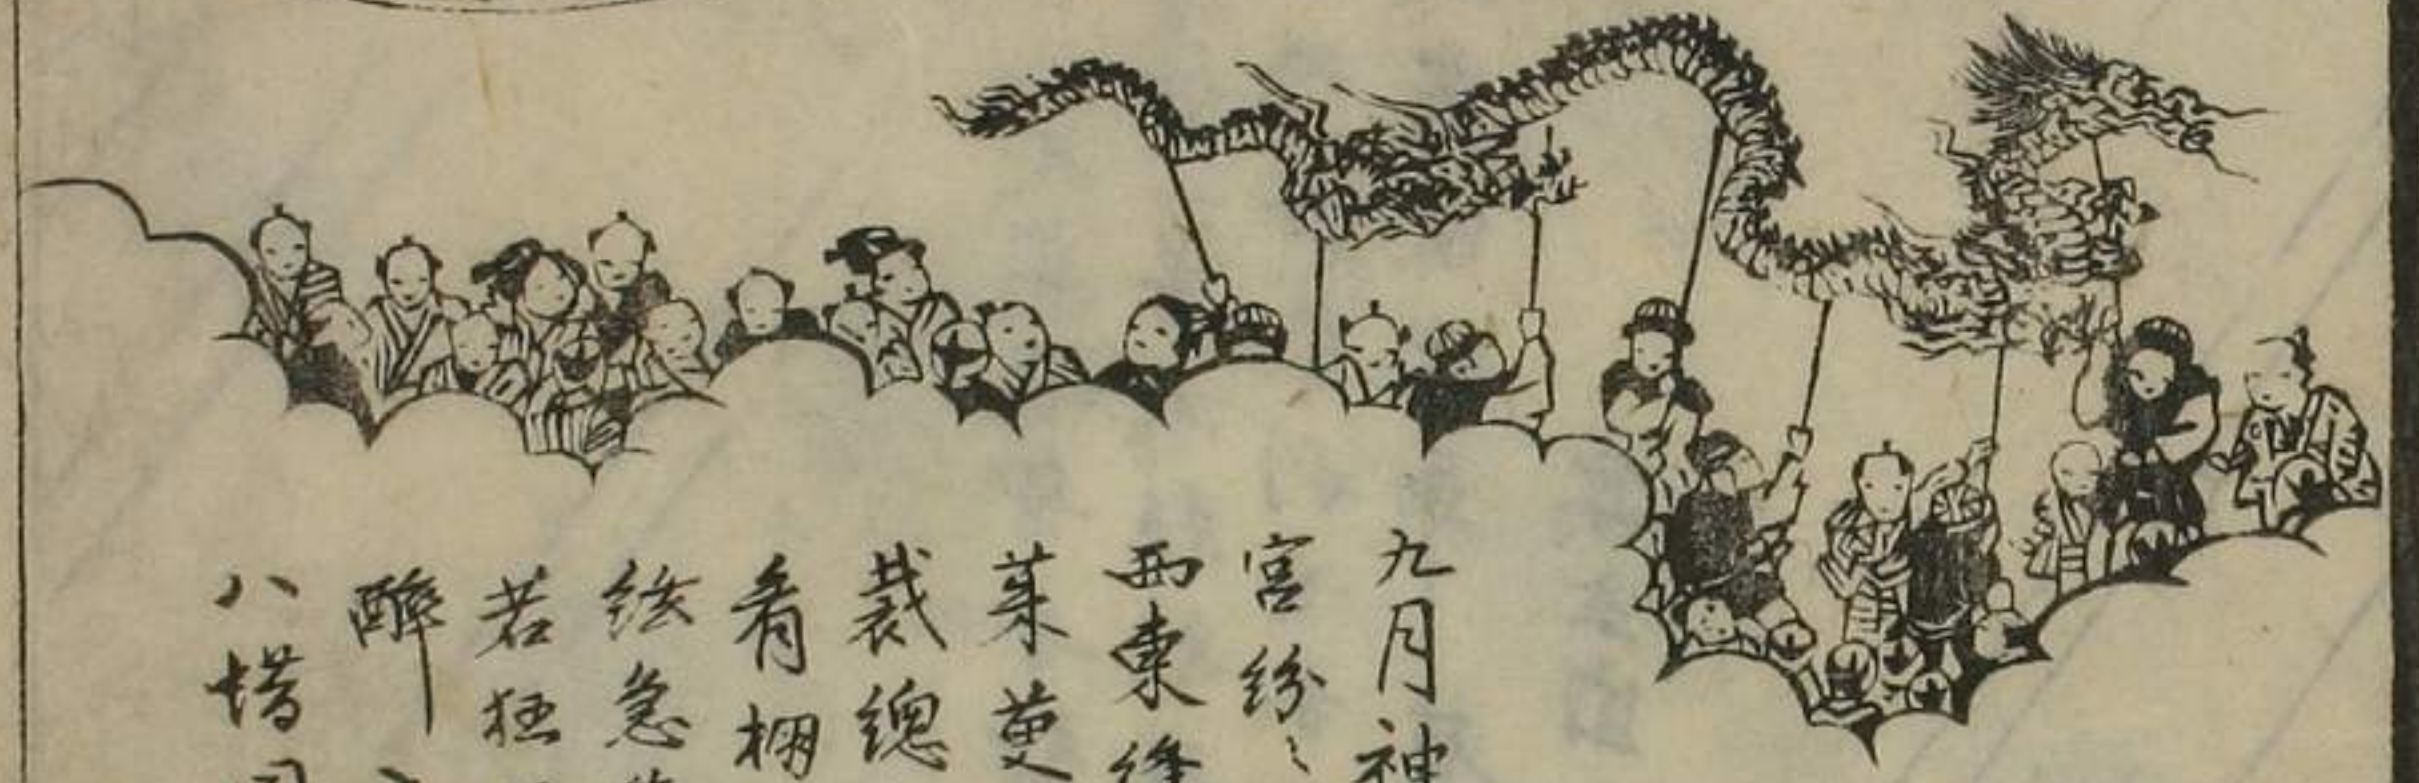 九月神
宮紛〻
西東
茱萸
裁總
肴棚
絃急
若狂
醉
八